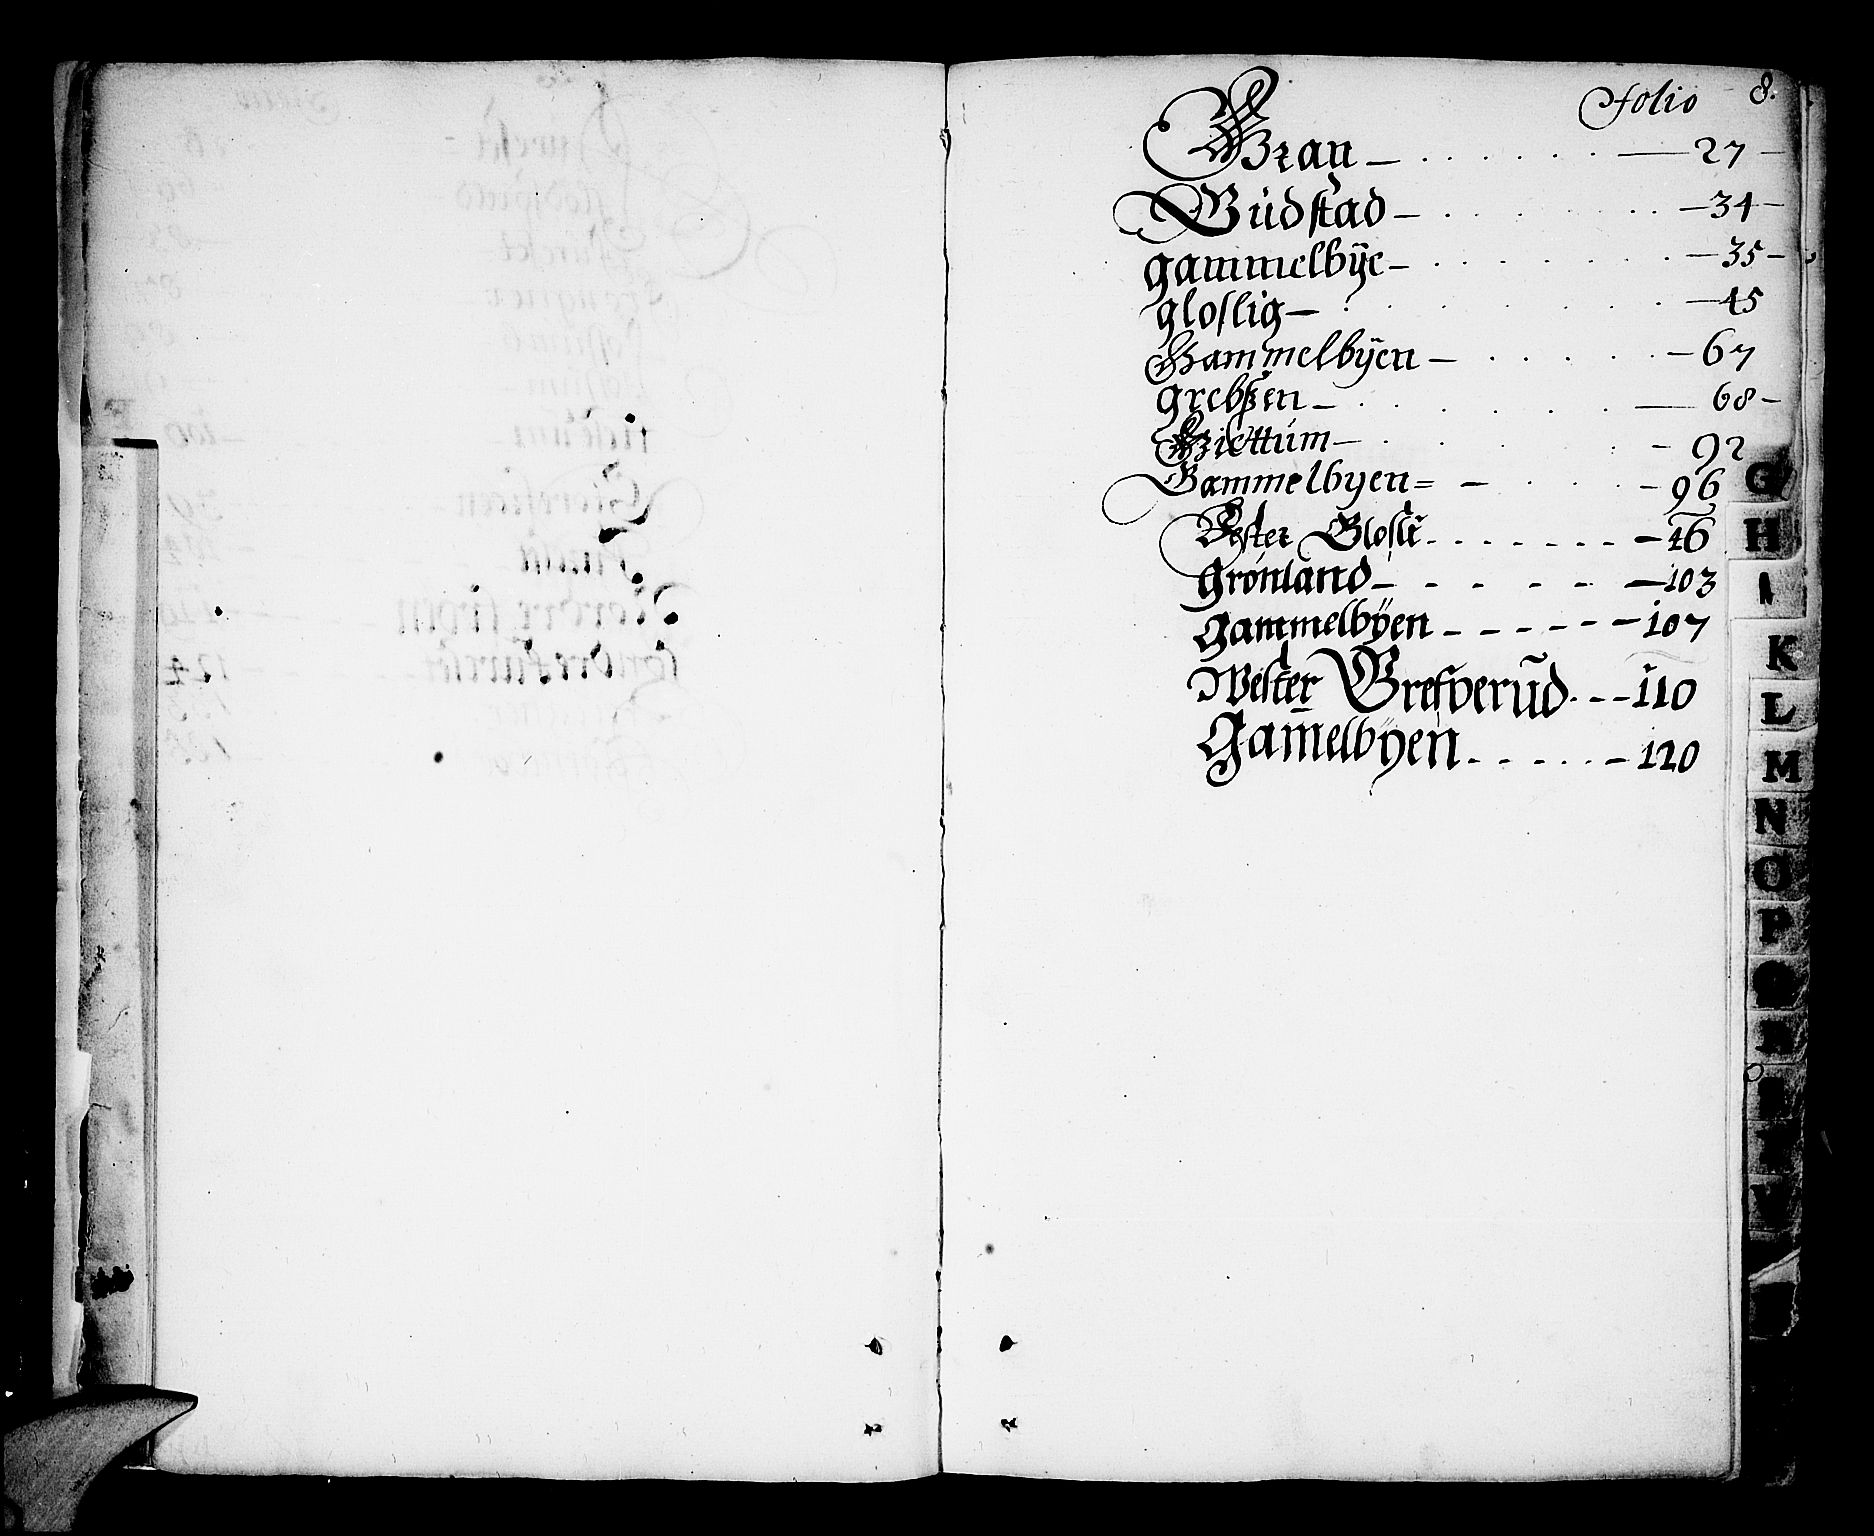 folio 8.
Gran — . . . . . . — 27 —
Gudstad — . . . . . . — 34 —
gammelbÿe — . . . . . . — 35 —
gloslig — . . . . . — 45
Gammelbÿen — . . . . — 67
grebßen — . . . . — 68 —
Giettum — . . . . — 92
Gammelbyen = — . . . — 96
Vester Glosli - - - - - - - 46
Grønland - - - - - - 103
gammelbÿen - - - - - - 107
Wester Grefverud - - - 110
Gam̄elbÿen - - - - - - 120
G
H
I
K
L
M
N
O
P
Q